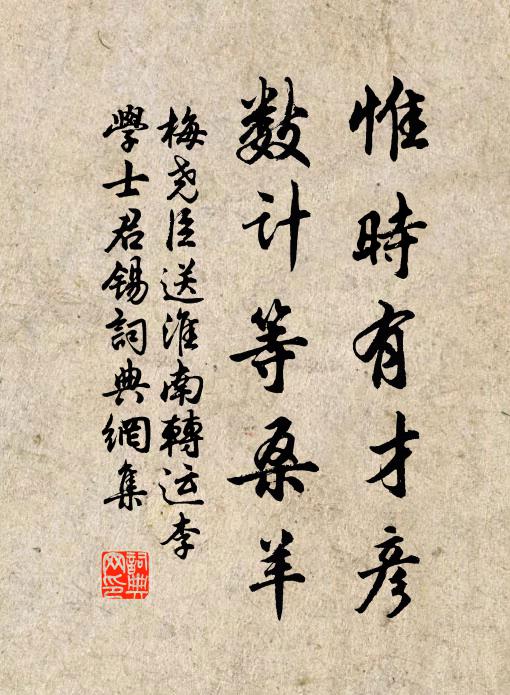 惟時有才彥
数计等桑羊
梅尧臣送淮南轉运李
學士君锡詞典網集
詞典网印